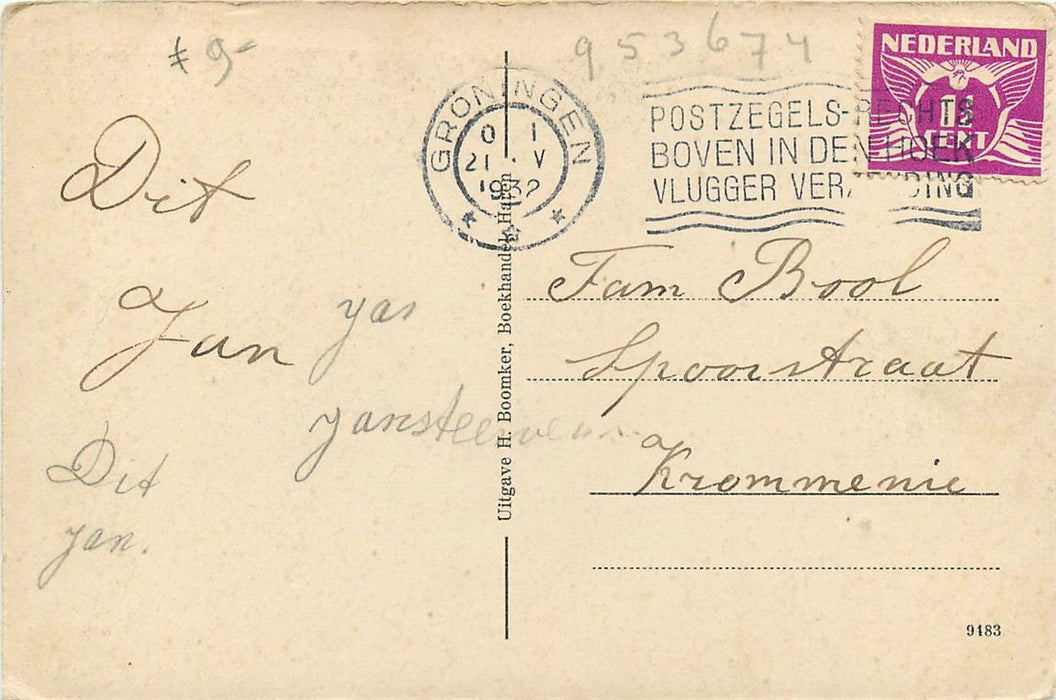 # 9-
953674
NEDERLAND
1½
CENT
GRONINGEN
0 1
21 . V
1932
POSTZEGELS-RECHTS
BOVEN IN DEN HOEK
VLUGGER VERZENDING
Dit
Jan
yan
yansteen
Dit
yan.
Uitgave H. Boomker, Boekhandel, Haren
Fam Bool
Spoorstraat
Krommenie
9183